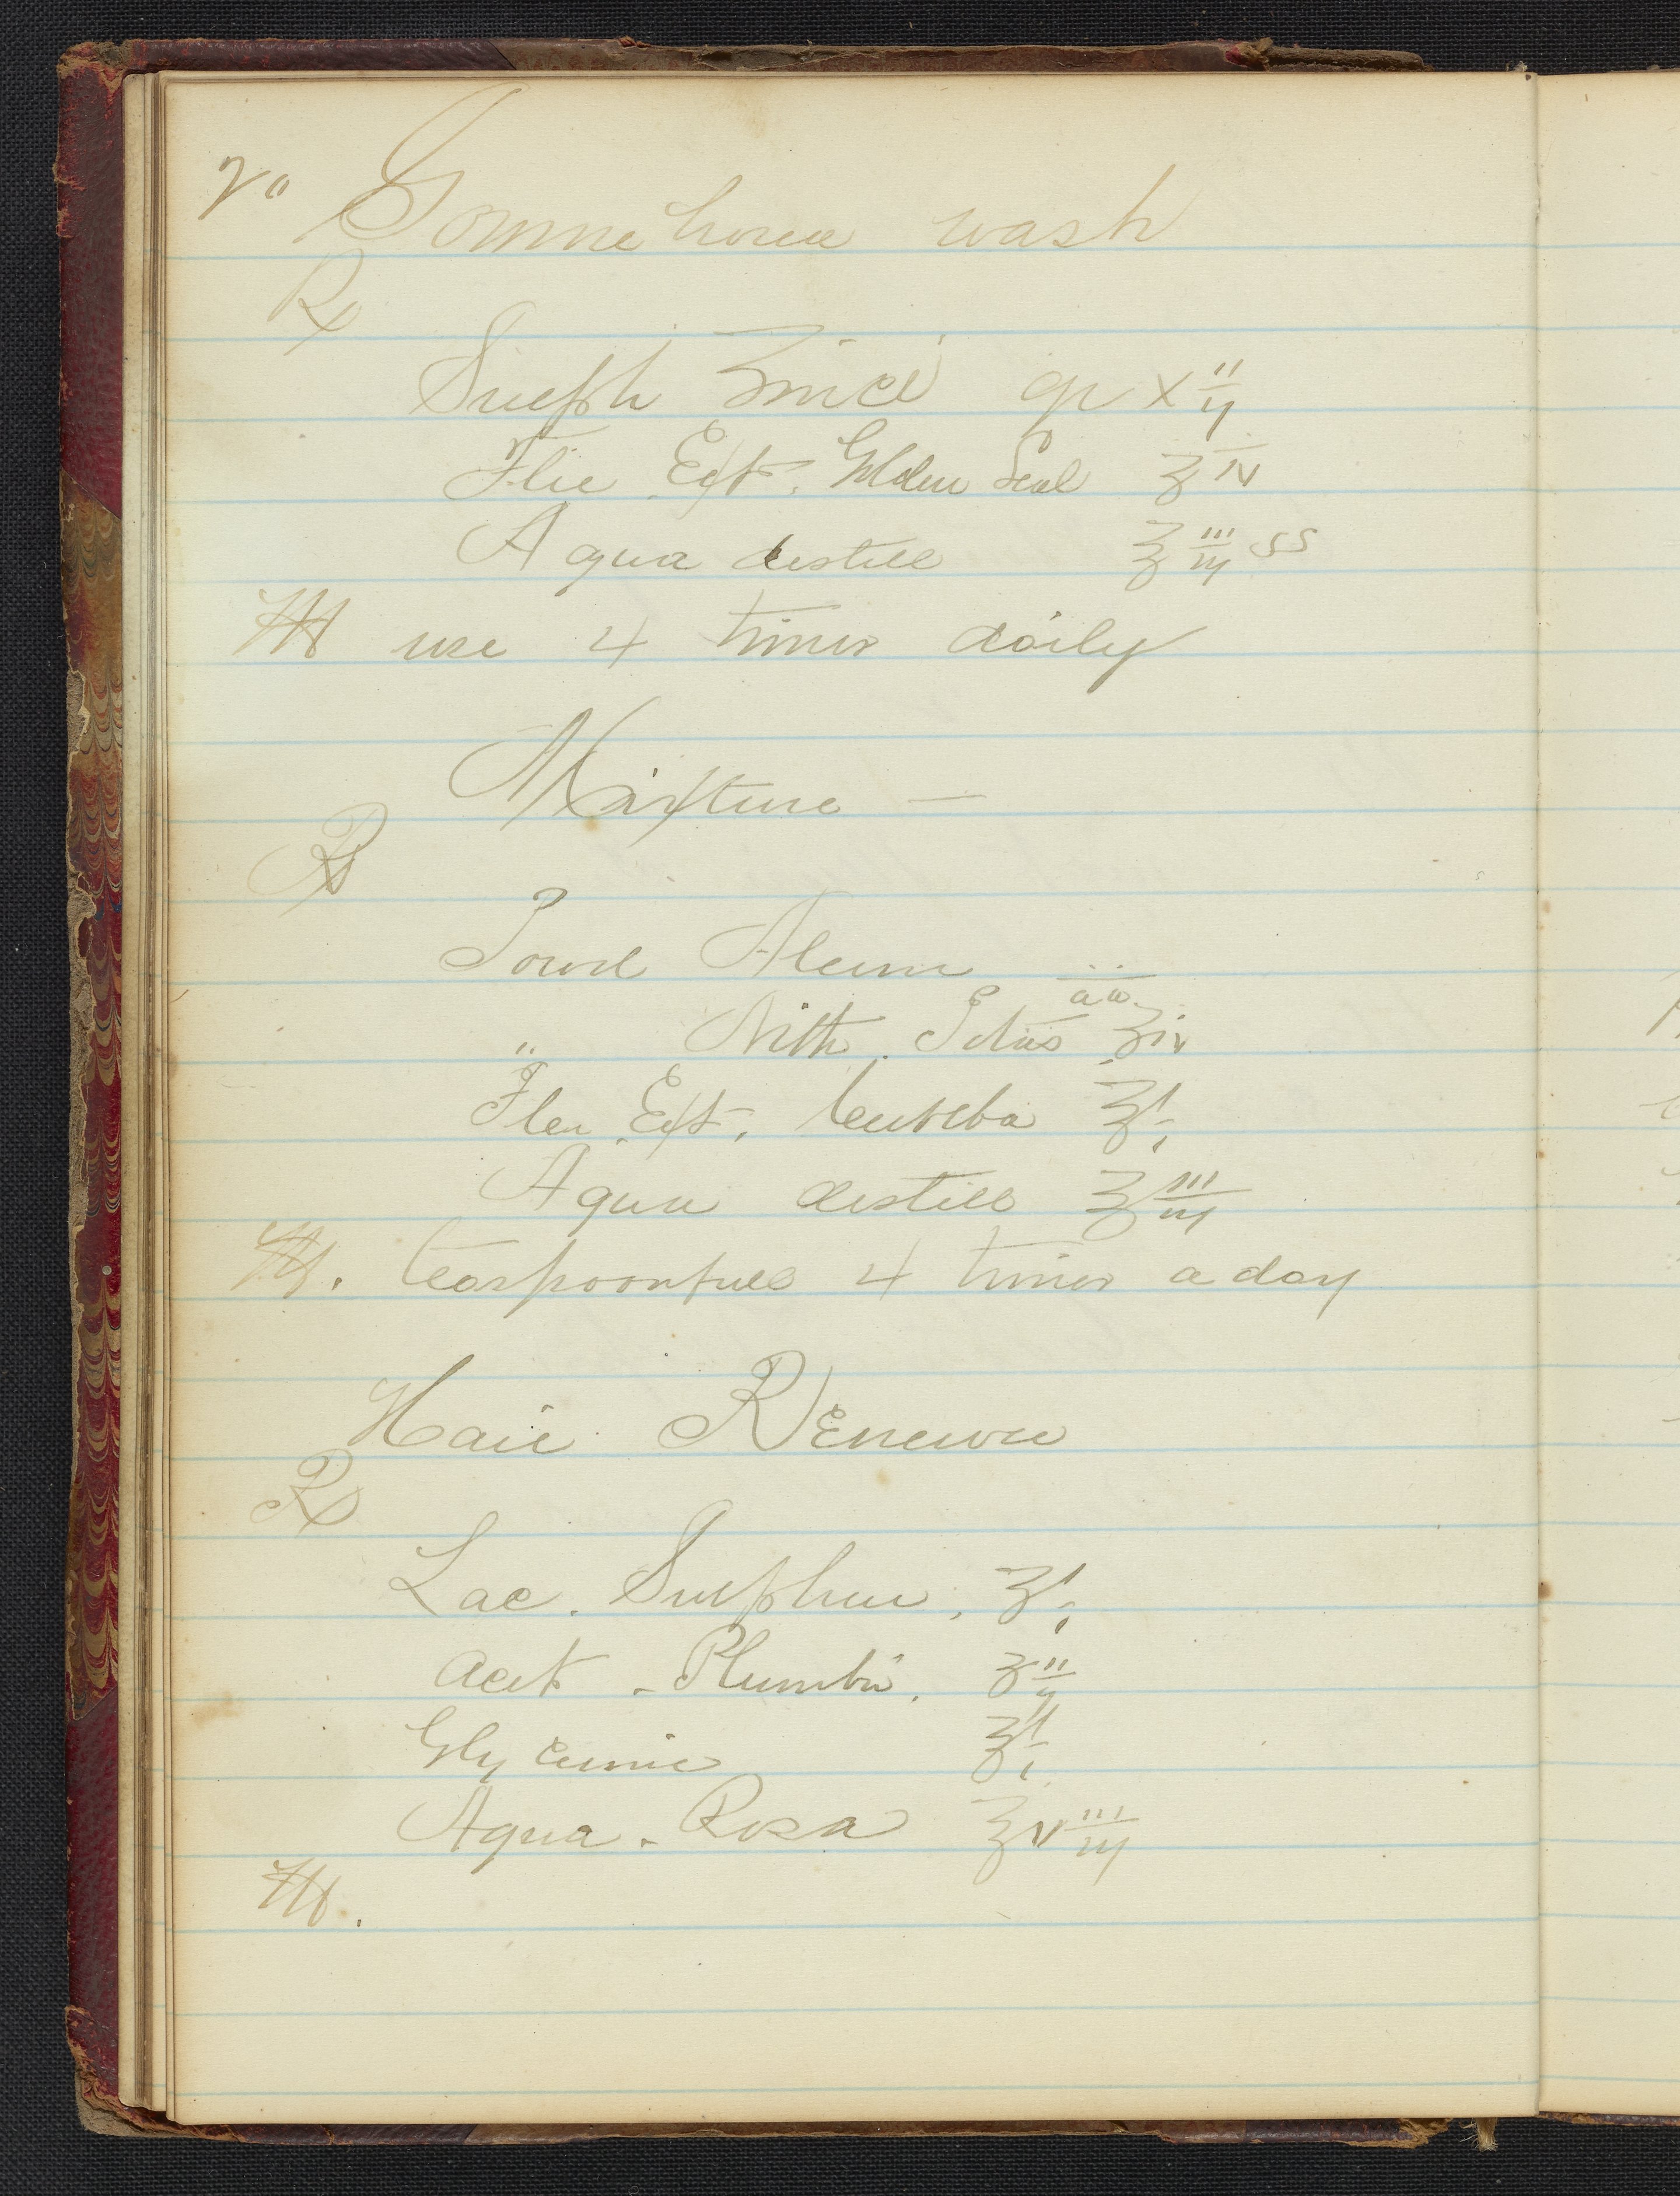 20 Gonnehorea wash
℞
Sulph Zinci gr xii
Flu Ext. Golden Seal ʒ iv
Aqua destill ℥ iii ss
M use 4 times daily
Mixture —
℞
Powd Alum āā
" Nitr. Potas ʒiv
Flu Ext. Cubeba ℥i
Aqua destill ℥ iii
M. teaspoonfull 4 times a day
Hair Renewer
℞
Lac. Sulphur. ʒi
Acet. Plumbi. ʒii
Glycerine ℥i
Aqua. Rosa ℥viii
M.